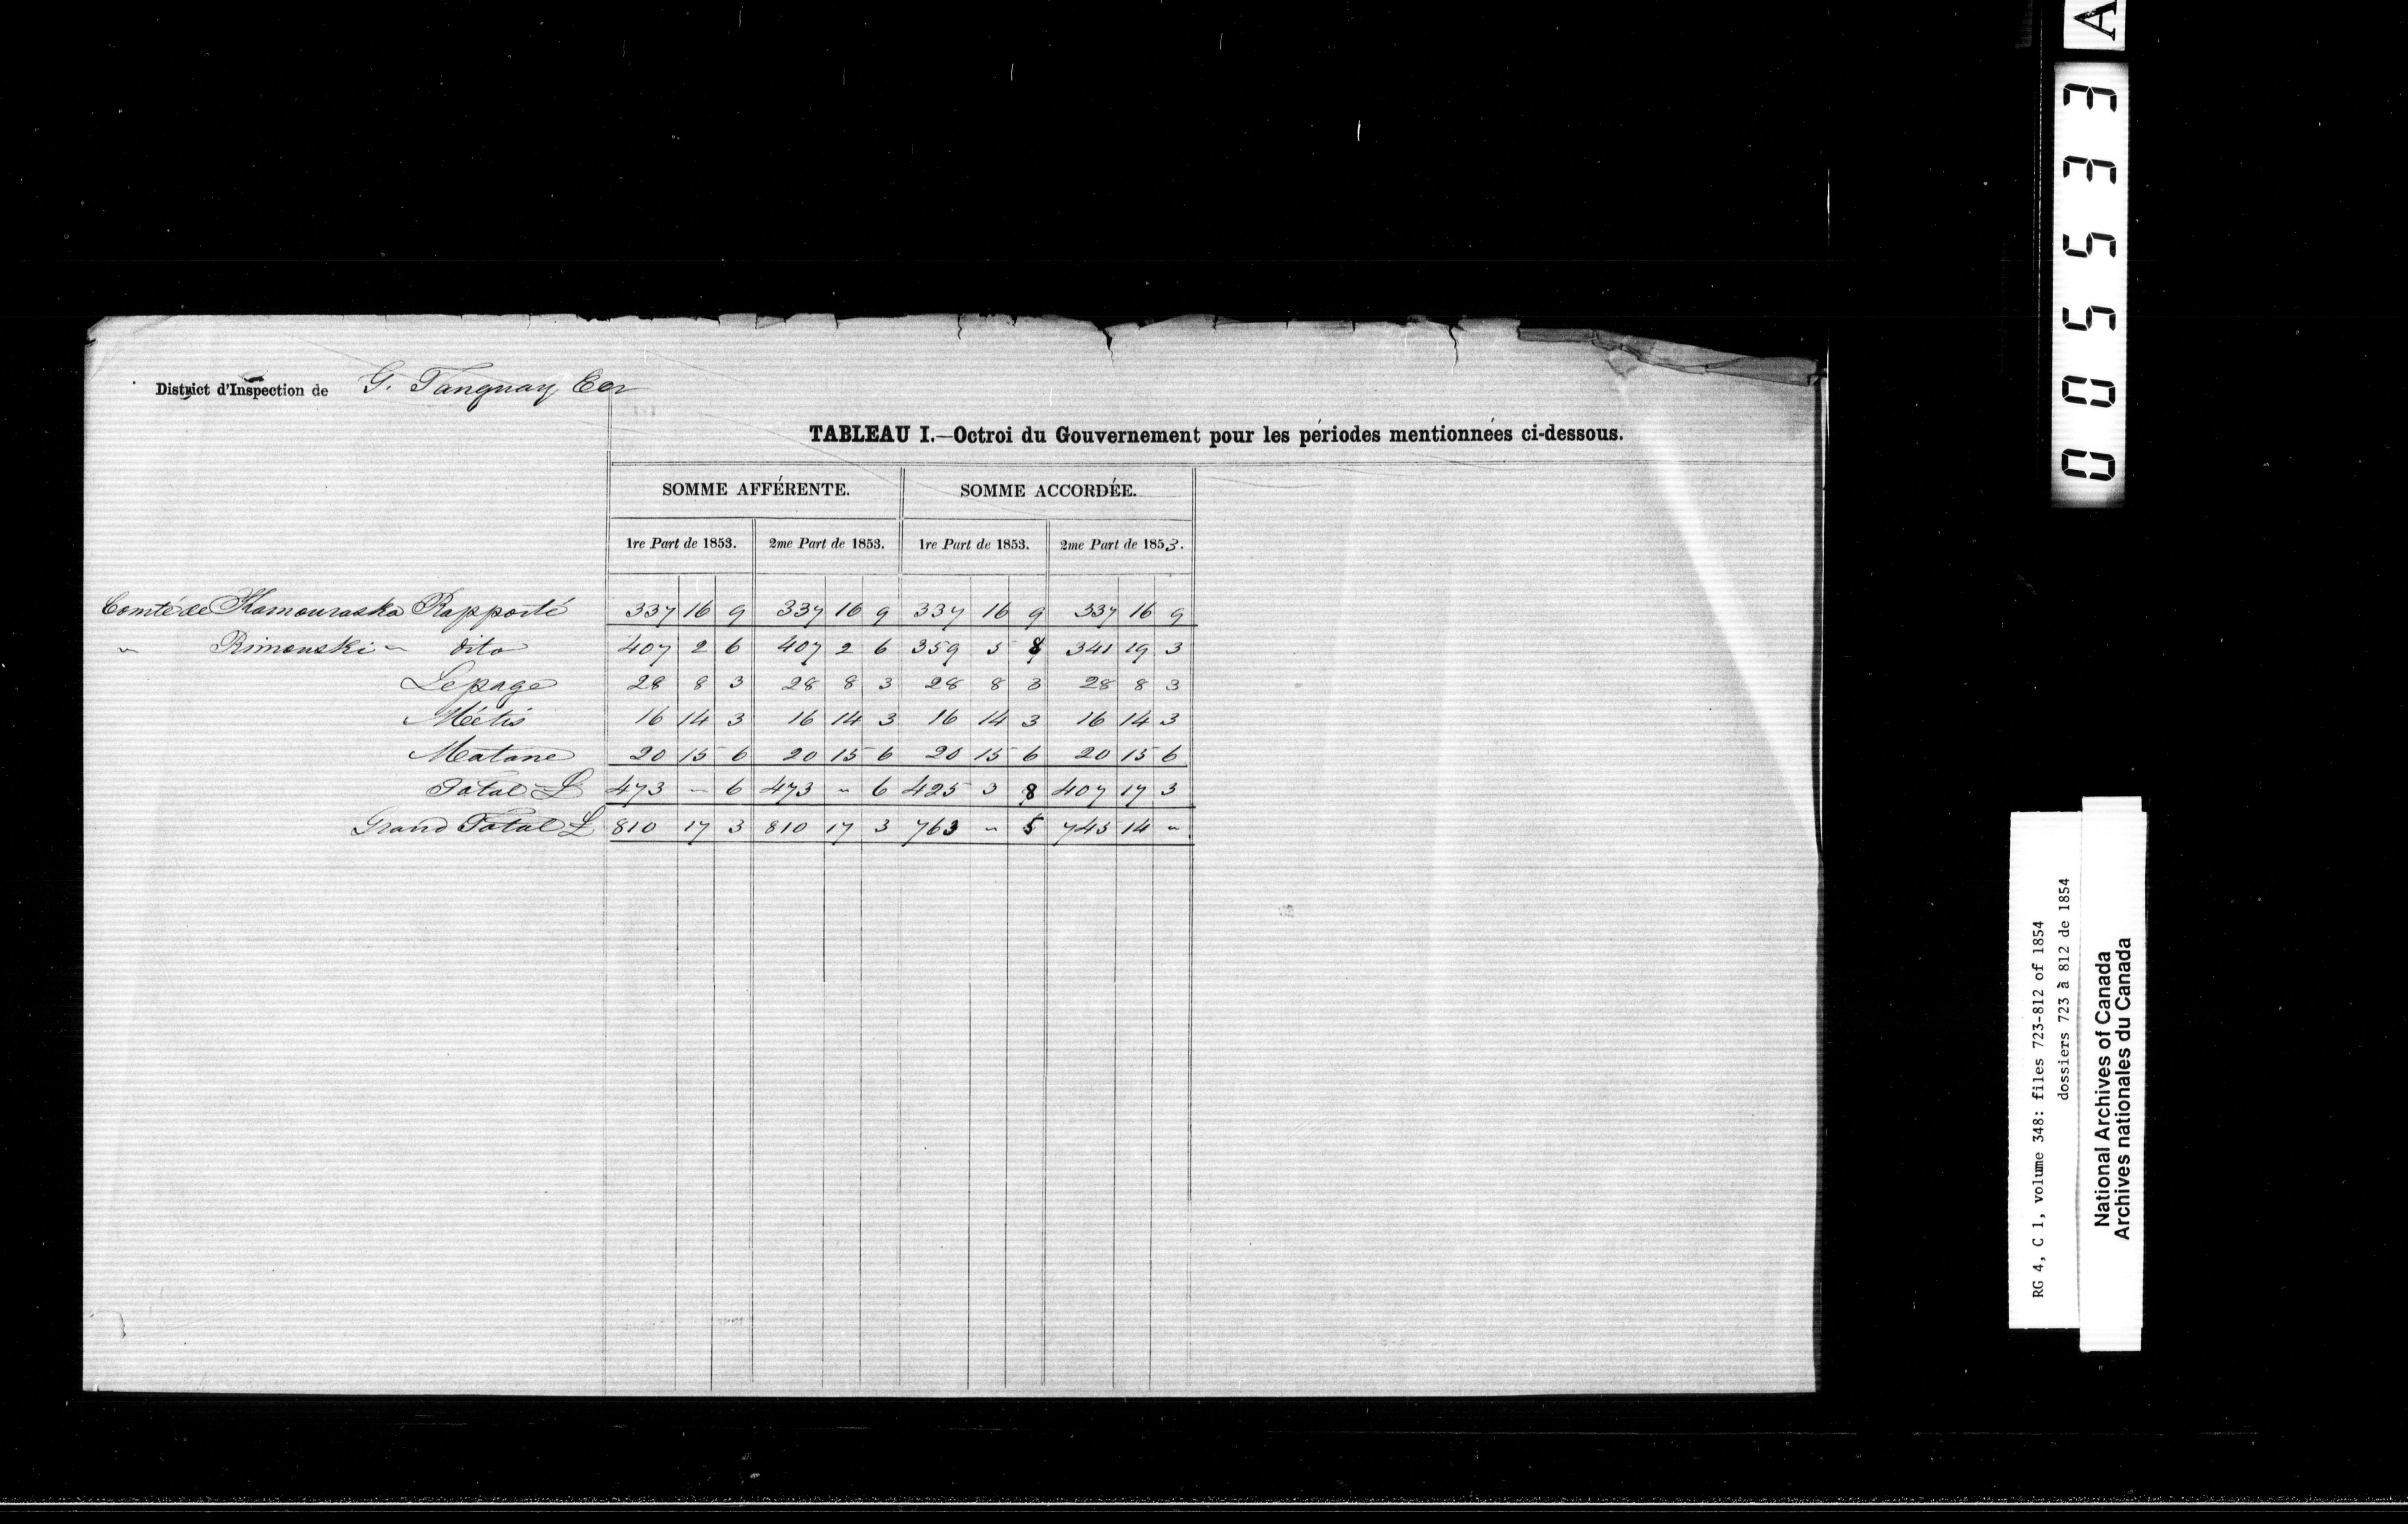 District d'Inspection de G. Tanguay Ecr
TABLEAU I.—Octroi du Gouvernement pour les périodes mentionnées ci-dessous.
SOMME AFFÉRENTE. SOMME ACCORDÉE.
1re Part de 1853. 2me Part de 1853. 1re Part de 1853. 2me Part de 1853.
Comté de Kamouraska Rapporté 337 16 9 337 16 9 337 16 9 337 16 9
" Rimouski " dito 407 2 6 407 2 6 359 5 8 341 19 3
Lepage 28 8 3 28 8 3 28 8 3 28 8 3
Métis 16 14 3 16 14 3 16 14 3 16 14 3
Matane 20 15 6 20 15 6 20 15 6 20 15 6
Total £ 473 " 6 473 " 6 425 3 8 407 17 3
Grand Total £ 810 17 3 810 17 3 763 " 5 745 14 "
A
005533
RG 4, C 1, volume 348: files 723-812 of 1854
dossiers 723 à 812 de 1854
National Archives of Canada
Archives nationales du Canada